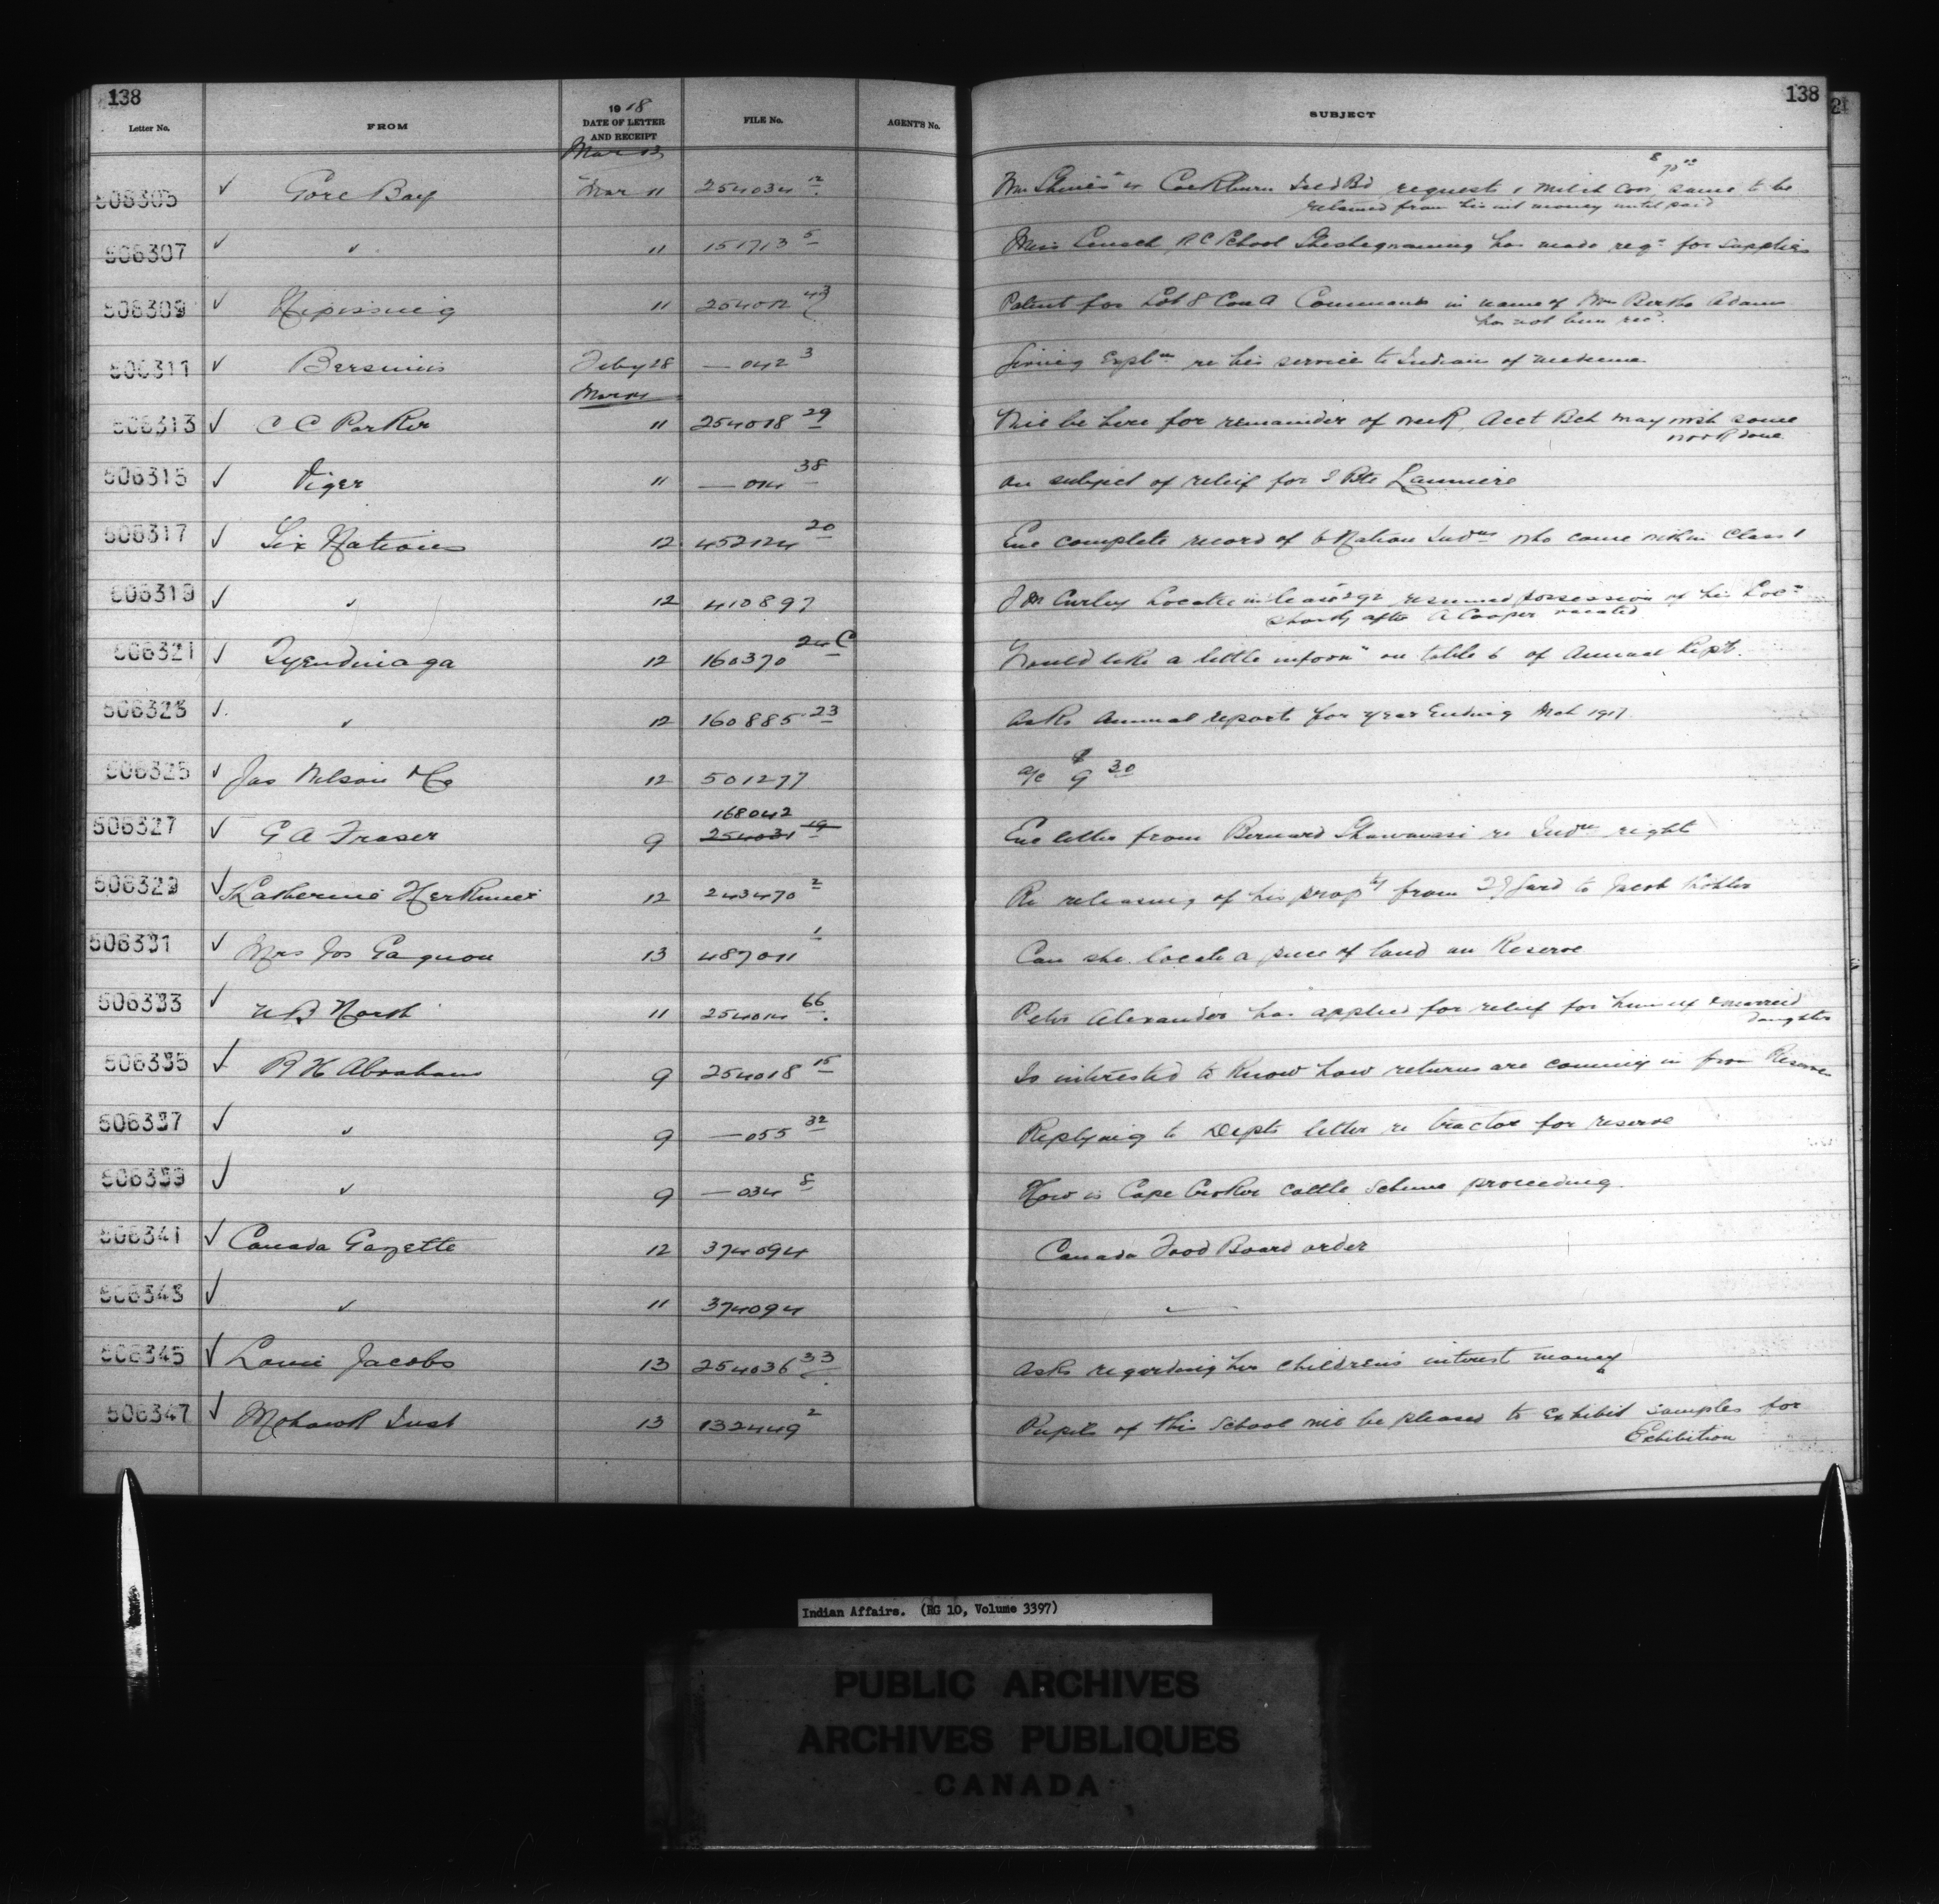 138
138
21
Letter No. FROM 1918 DATE OF LETTER AND RECEIPT FILE No. AGENT'S No. SUBJECT
Mar 13
506305 ✓ Gore Bay Mar 11 254034 12 Cockburn Isld Bd request 1 milch cow $70 00 same to be
retained from his int money until paid
506307 ✓ " 11 151713 5 Miss R C School Sheshegwaning has made reqn for supplies
506309 ✓ Nipissing 11 254012 43 Patent for Lot 8 Con A Commanda in name of Mrs Bertha Adams
has not been recd.
506311 ✓ Bersimis Feby 28 — 042 3 Giving Expln re his service to Indians of medicine
Mar
506313 ✓ C C Parker 11 254018 29 Will be here for remainder of week, Acct Bch may wish some
work done
506315 ✓ Viger 11 — 014 38 On subject of relief for J Bte Launiere
506317 ✓ Six Nations 12 452124 20 Enc complete record of 6 Nation Indns who come within Class 1
506319 ✓ " 12 410897 Curley Locatee in lease 292 resumed possession of his Locn
shortly after A Cooper vacated
506321 ✓ Tyendinaga 12 160370 24 C Would like a little inform on table 6 of Annual Rept.
506323 ✓ " 12 160885 23 Asks Annual reports for year Ending Mch 1917
506325 ✓ Jas Wilson & Co 12 501277 a/c $9 30
506327 ✓ G A Fraser 9 168042 254031 19 Enc letter from Bernard re Indn right
506329 ✓ Katherine Herkimer 12 243470 2 Re releasing of his propty from to Jacob Kohler
506331 ✓ Mrs Jos Gagnon 13 487011 1 Can she locate a piece of land on Reserve
506333 ✓ N B North 11 254014 66 Peter Alexander has applied for relief for himself & married
daughter
506335 ✓ R H Abraham 9 254018 15 Is interested to know how returns are coming in from Reserves
506337 ✓ " 9 — 055 32 Replying to Depts letter re tractor for reserve
506339 ✓ " 9 — 034 8 How is Cape Croker cattle scheme proceeding.
506341 ✓ Canada Gazette 12 374094 Canada Food Board order
506343 ✓ " 11 374094 "
506345 ✓ Louie Jacobs 13 254036 33 Asks regarding her children's interest money
506347 ✓ Mohawk Inst 13 132449 2 Pupils of this School will be pleased to exhibit samples for
Exhibition
Indian Affairs. (RG 10, Volume 3397)
PUBLIC ARCHIVES
ARCHIVES PUBLIQUES
CANADA